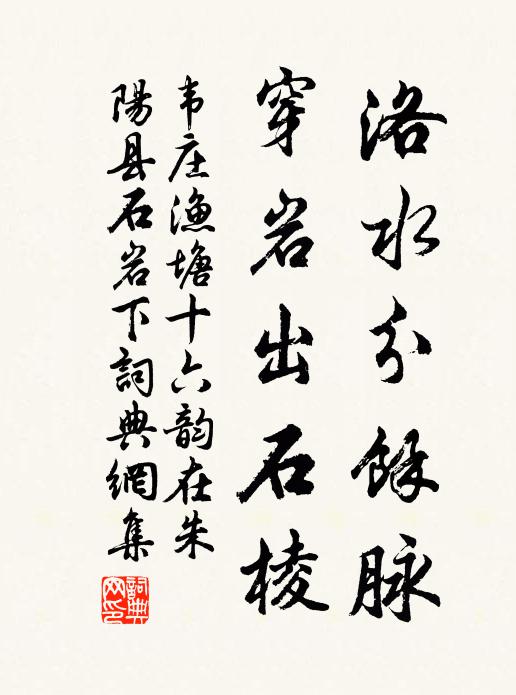 洛水分餘脉
穿岩出石棱
韦庄渔塘十六韵在朱
陽县石岩下詞典網集
詞典
网印